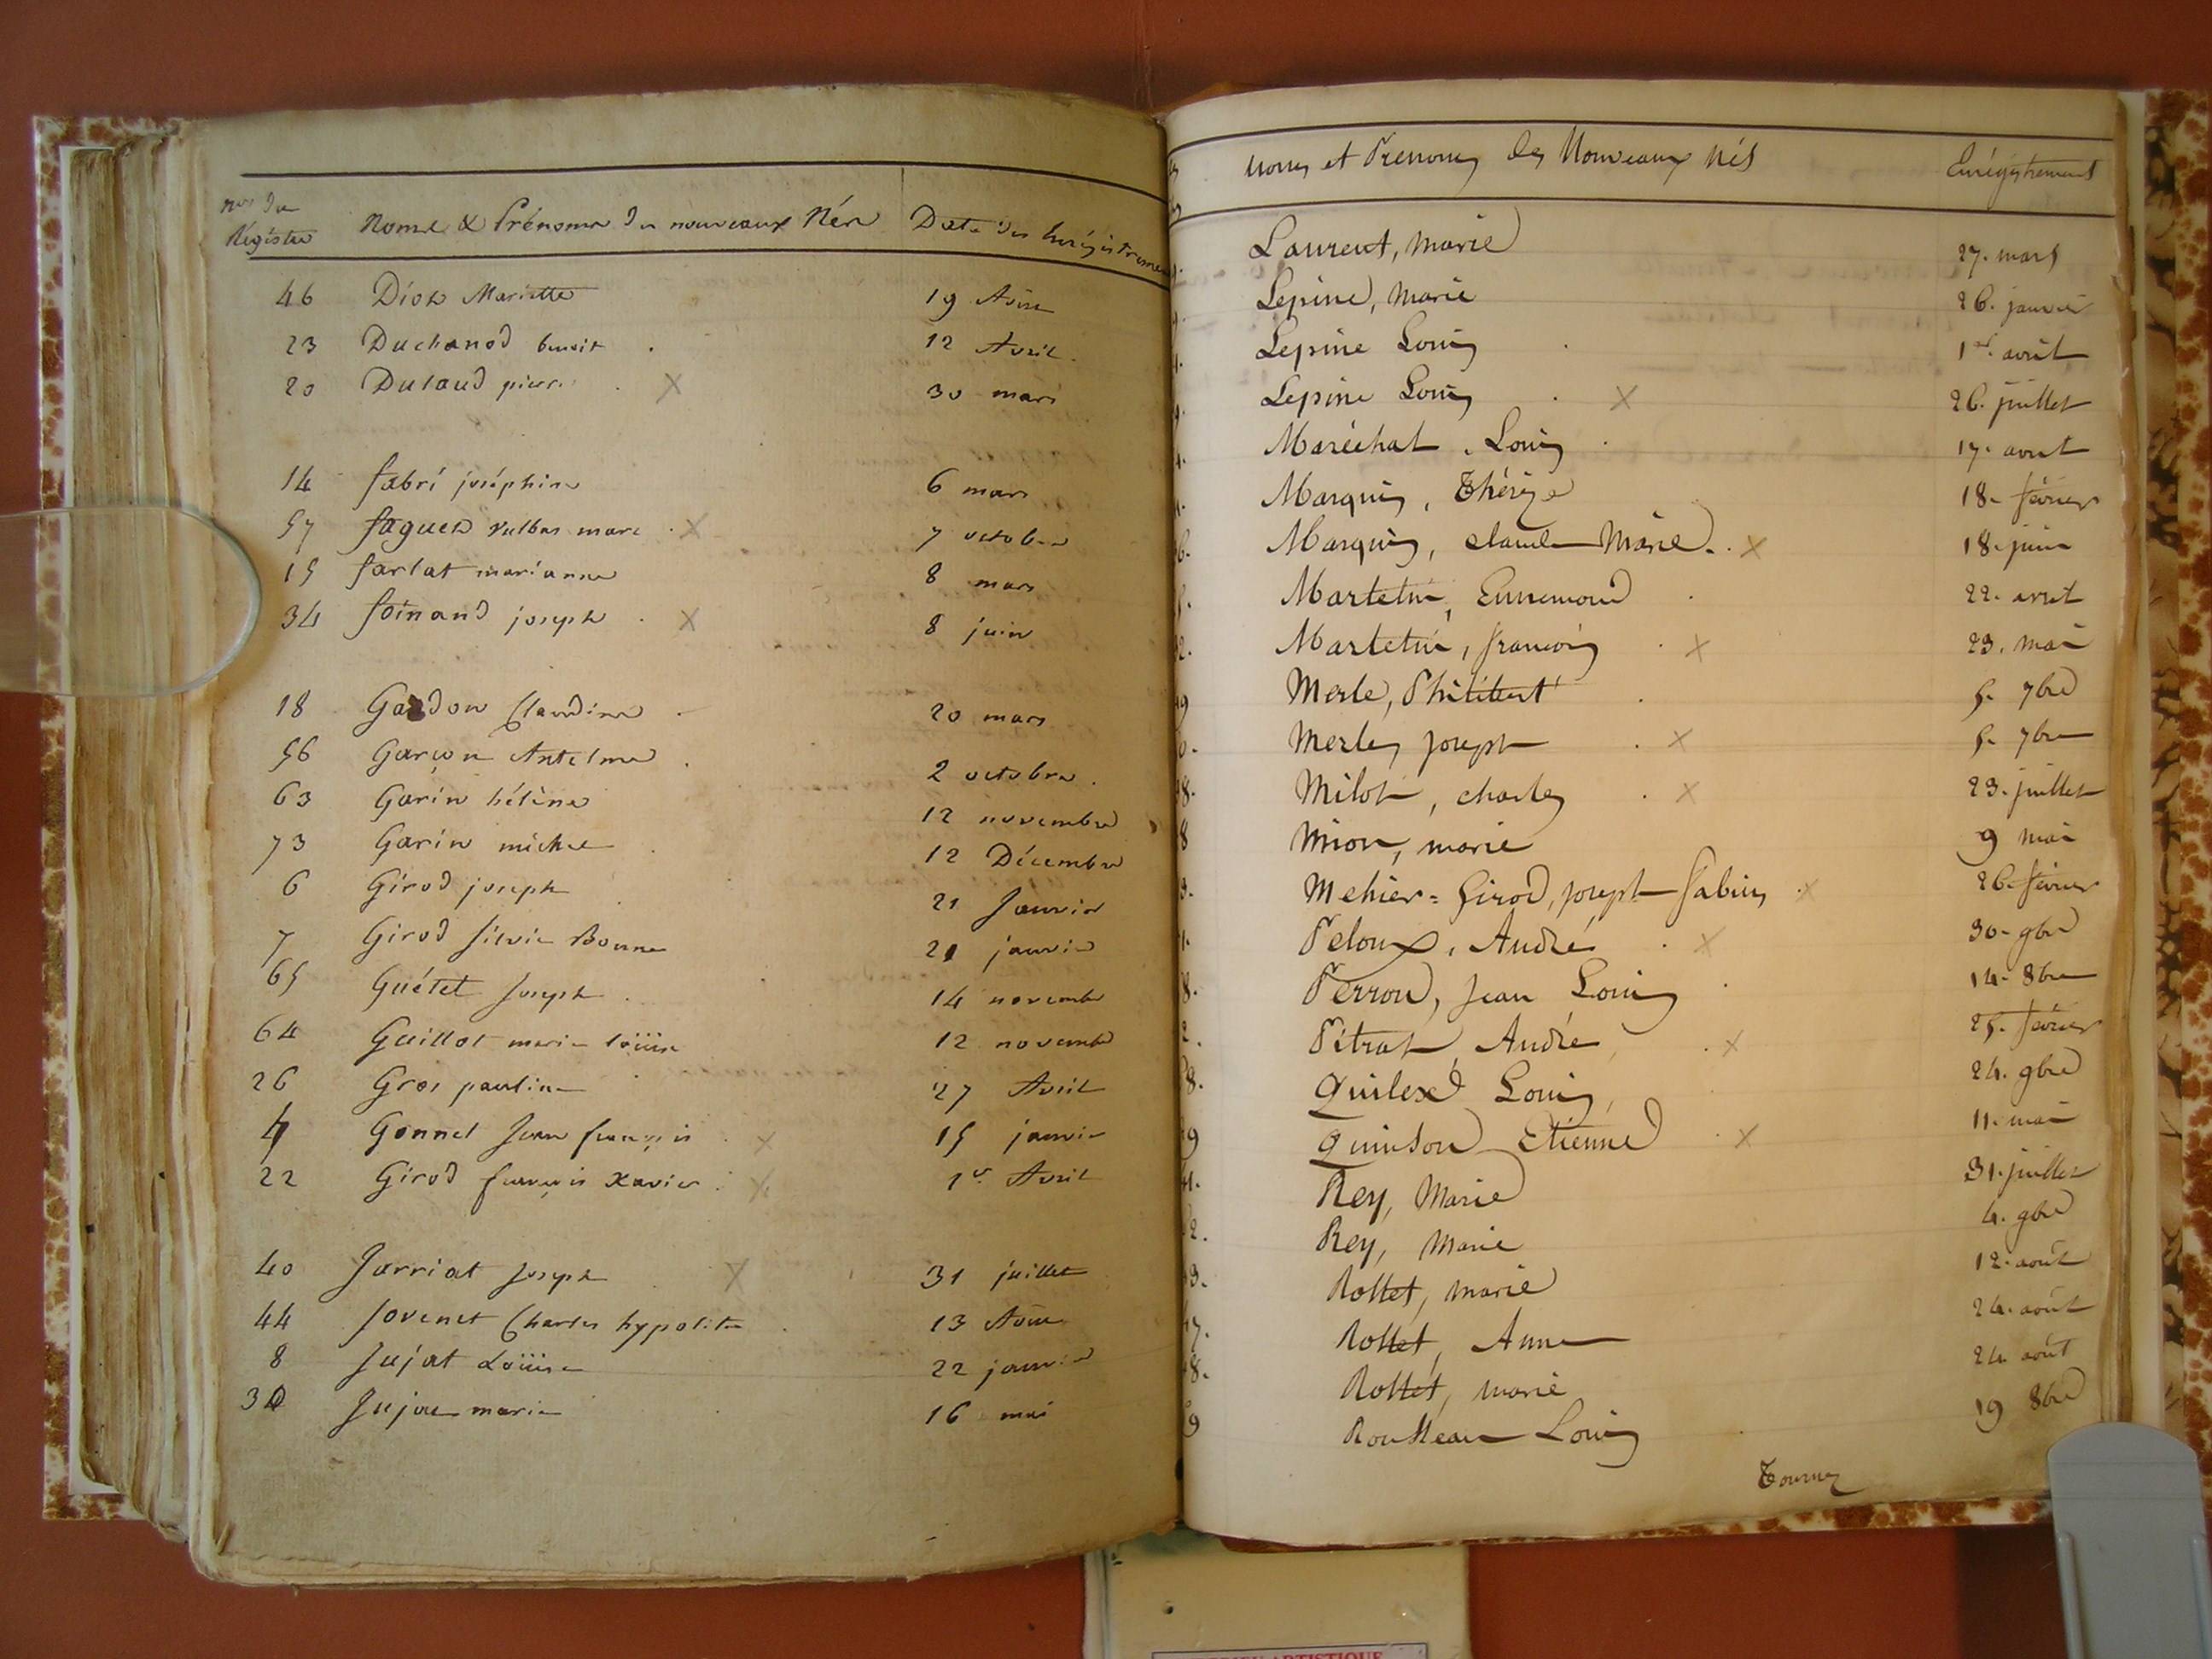 nos des
Régistre Noms & Prénoms des nouveaux Nés Date des Enrégistremen
46 Dior Mariette 19 Aôut
23 Duchanod benoit 12 Avril
20 Dulaud pierre X 30 mars
14 fabri joséphine 6 mars
57 faguet vulbas marc X 7 octobre
15 farlat marianne 8 mars
34 foinand joseph X 8 juin
18 Gardon Claudine 20 mars
56 Garçon Antelme 2 octobre
63 Garin hélène 12 novembre
73 Garin michel 12 Décembre
6 Girod joseph 21 Janvier
7 Girod silvie Bonne 21 janvier
65 Guétet Joseph 14 novembre
64 Guillot marie loüise 12 novembre
26 Gros pauline 27 Avril
4 Gonnet Jean françois X 15 janvier
22 Girod françois Xavier X 1er Avril
40 Jarriat Joseph X 31 juillet
44 Jovenet Charles hypolite 13 Aôut
8 Jujat Loüise 22 janvier
30 Jujat marie 16 mai
noms et Prenoms des Nouveaux Nés Enrégistrement
Laurent, Marie 27. mars
Lepine, Marie 26. janvier
Lepine Louis 1er avril
Lepine Louis X 26. juillet
Maréchal, Louis 17. avril
Marquis, Thérèze 18. février
6. Marquis, claude Marie X 18. juin
Martelin, Ennemond 22. avril
2. Martelin, françois X 23. mai
9 Merle, Philibert 5. 7bre
0. Merle, joseph X 5. 7bre
8. Milot, charles X 23. juillet
8 Mion, marie 9 mai
3. Mehier = Girod, joseph Sabin X 26. février
1. Peloux, André X 30. 9bre
8. Perroud, Jean Louis 14. 8bre
2. Pitrat, André X 25. février
8. Quilexe Louis 24. 9bre
9 Quinson Etienne X 11. mai
1. Rey, Marie 31. juillet
2. Rey, Marie 4. 9bre
3. Rollet, Marie 12. août
7. Rollet, Anne 24. août
8. Rollet, Marie 24 août
9 Rousseau Louis 19 8bre
Tournez